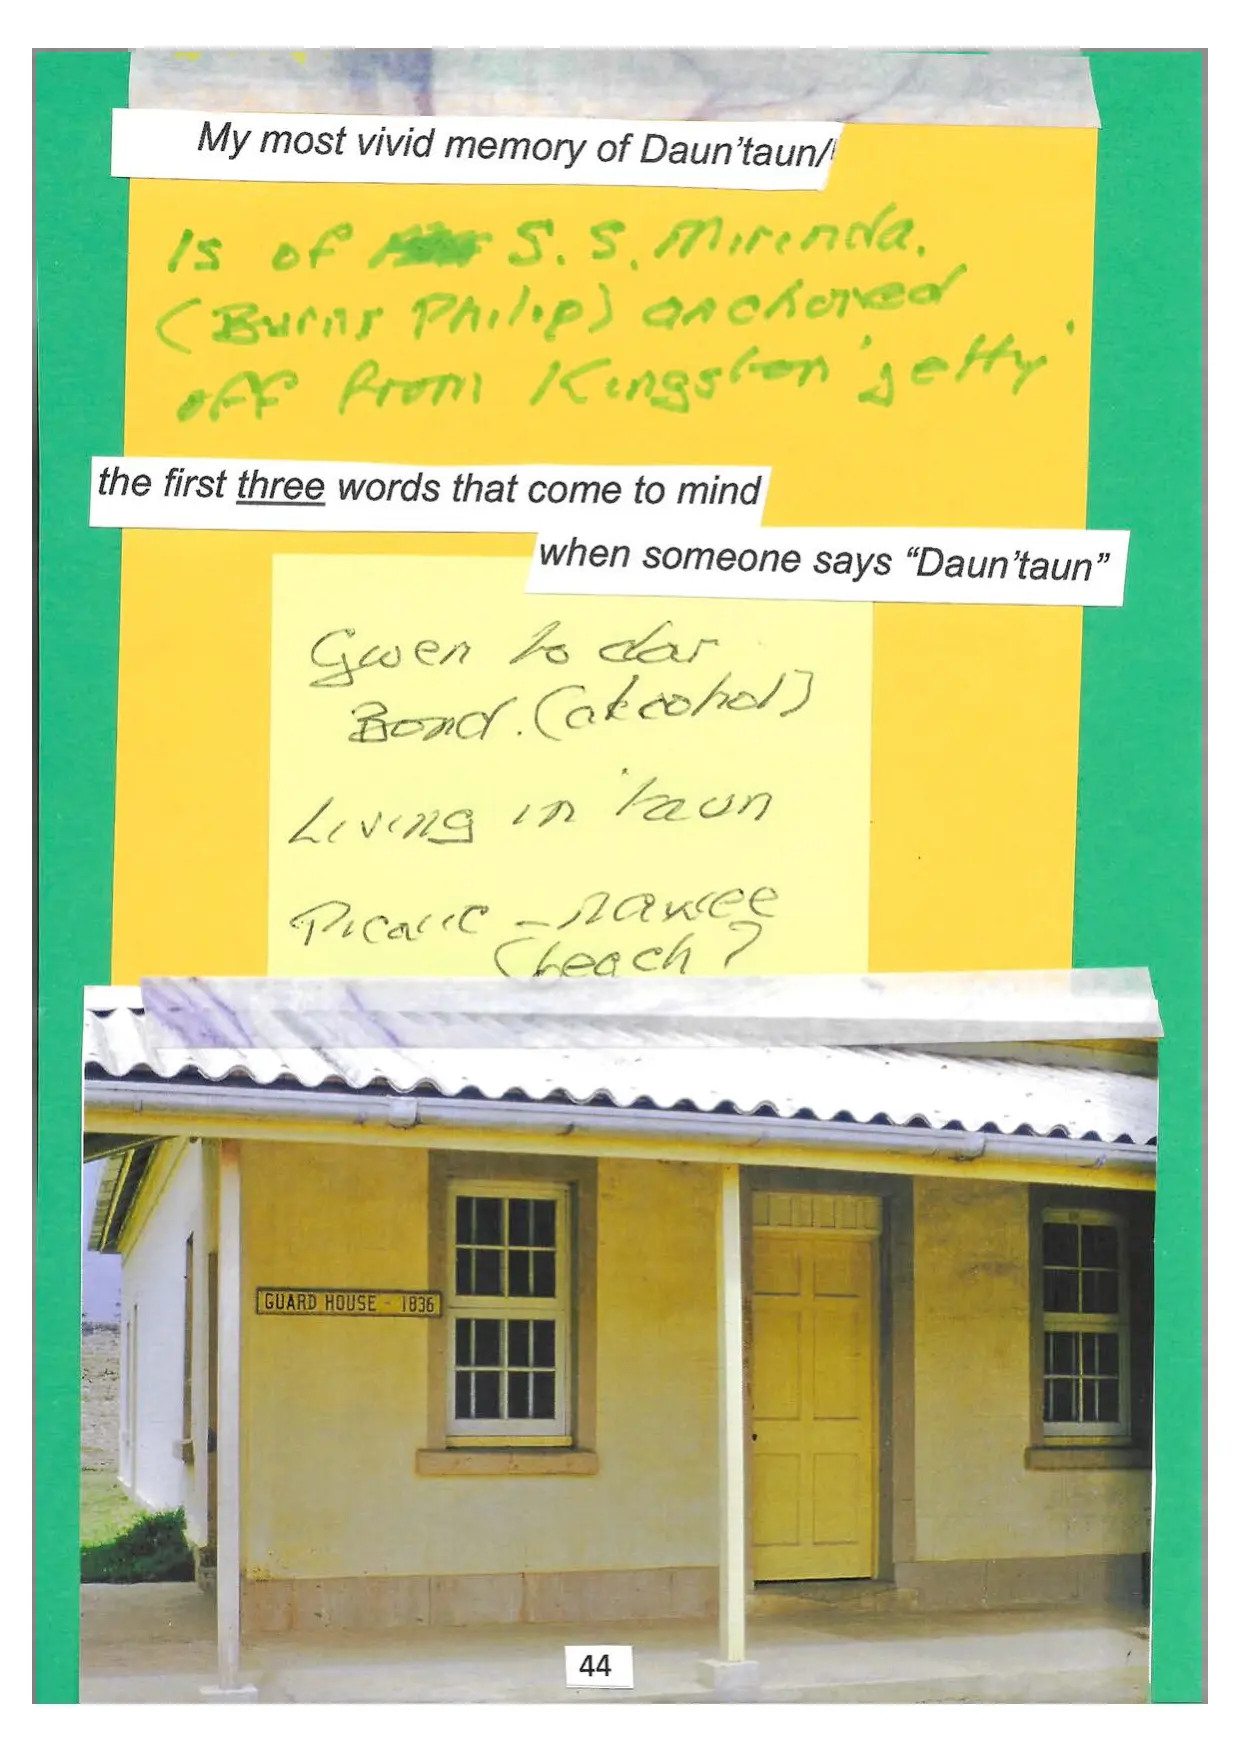 My most vivid memory of Daun'taun/
Is of S.S. Mirinda.
(Burns Philip) anchored
off from Kingston 'jetty'
the first three words that come to mind
when someone says "Daun'taun"
Gwen to dar
Bond. (alcohol)
Living in 'taun
Picnic - nawee
(beach?
GUARD HOUSE - 1836
44